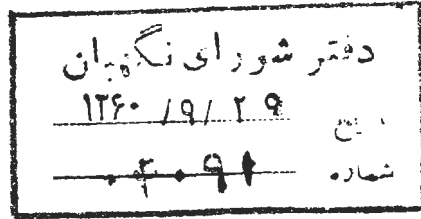 دفتر شورای نگهبان
تاریخ ۱۳۶۰/۹/۲۹
شماره